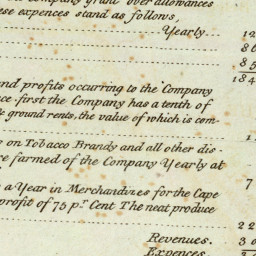 Company grant over allowances
ese expences stand as follows,
Yearly... 12
86
85
184
nd profits occurring to the Company
ce first the Company has a tenth of
e ground rents, the value of which is com-
1
on Tobacco Brandy and all other dis-
re farmed of the Company Yearly at
7
a Year in Merchandizes for the Cape
profit of 75 p.r Cent The neat produce
22
Revenues. 30
Expences.